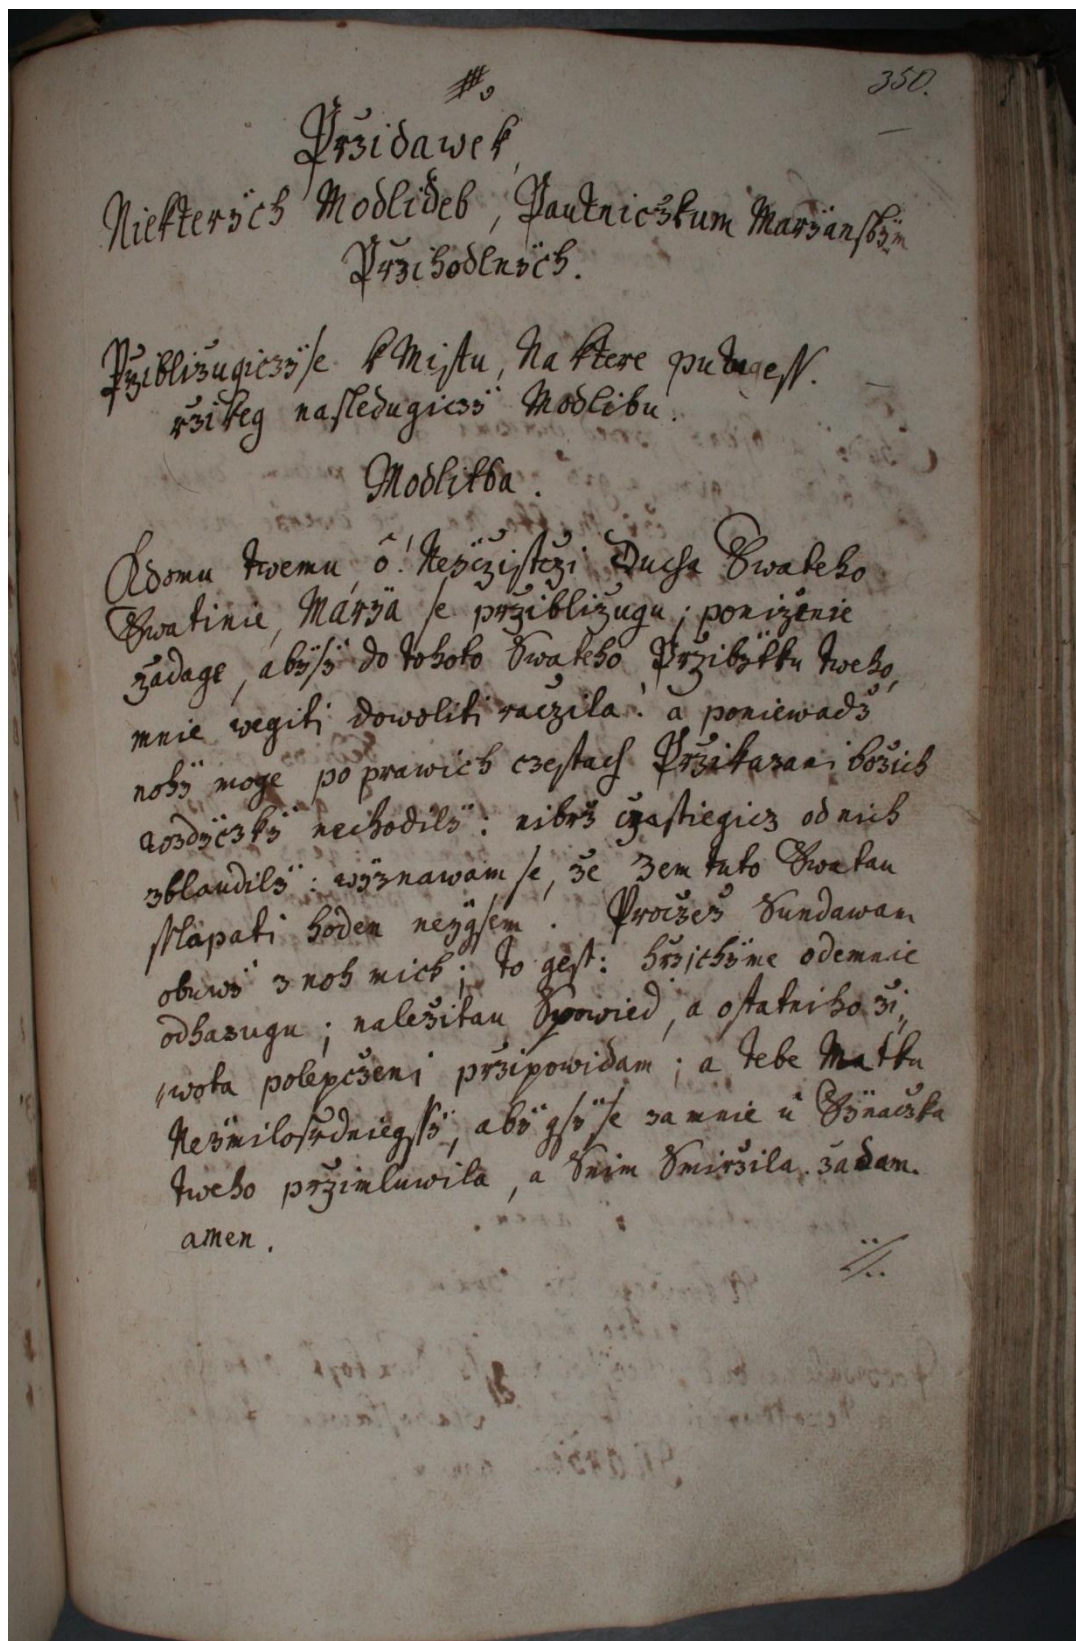 350.
Przidawek
Niekterých Modlideb, Pautniczkum Marÿanskÿm
Przihodlnÿch.
Przibližugiczÿ se k Mistu, Na ktere putugess.
rzikeg nasledugiczÿ Modlibu.
Modlitba.
Kdomu twemu ô! Neÿczistczi Ducha Swateho
Swatinie, Márÿa se przibližugu; poniženie
žadage, abÿsÿ do tohoto Swateho Przibÿtku tweho,
mnie wegiti dowoliti raczila: a poniewadž
nohÿ moge po prawich czestach Przikazani božich
wždÿczkÿ nechodilÿ: nibrž czastiegicz od nich
zblaudilÿ: wÿznawam se, že zem tuto Swatau
sslapati hoden neÿgsem. Proczež Sundawam
obuwÿ z noh mich; to gest: hrzichÿ me odemnie
odhazugu; naležitau Spowied, a ostatniho ži,,
,,wota polepczeni przipowidam; a tebe Matku
Neÿmilosrdniegssÿ, abÿ gsÿ se za mnie ú Sÿnaczka
tweho przimluwila, a Snim Smirzila. žadam.
amen.